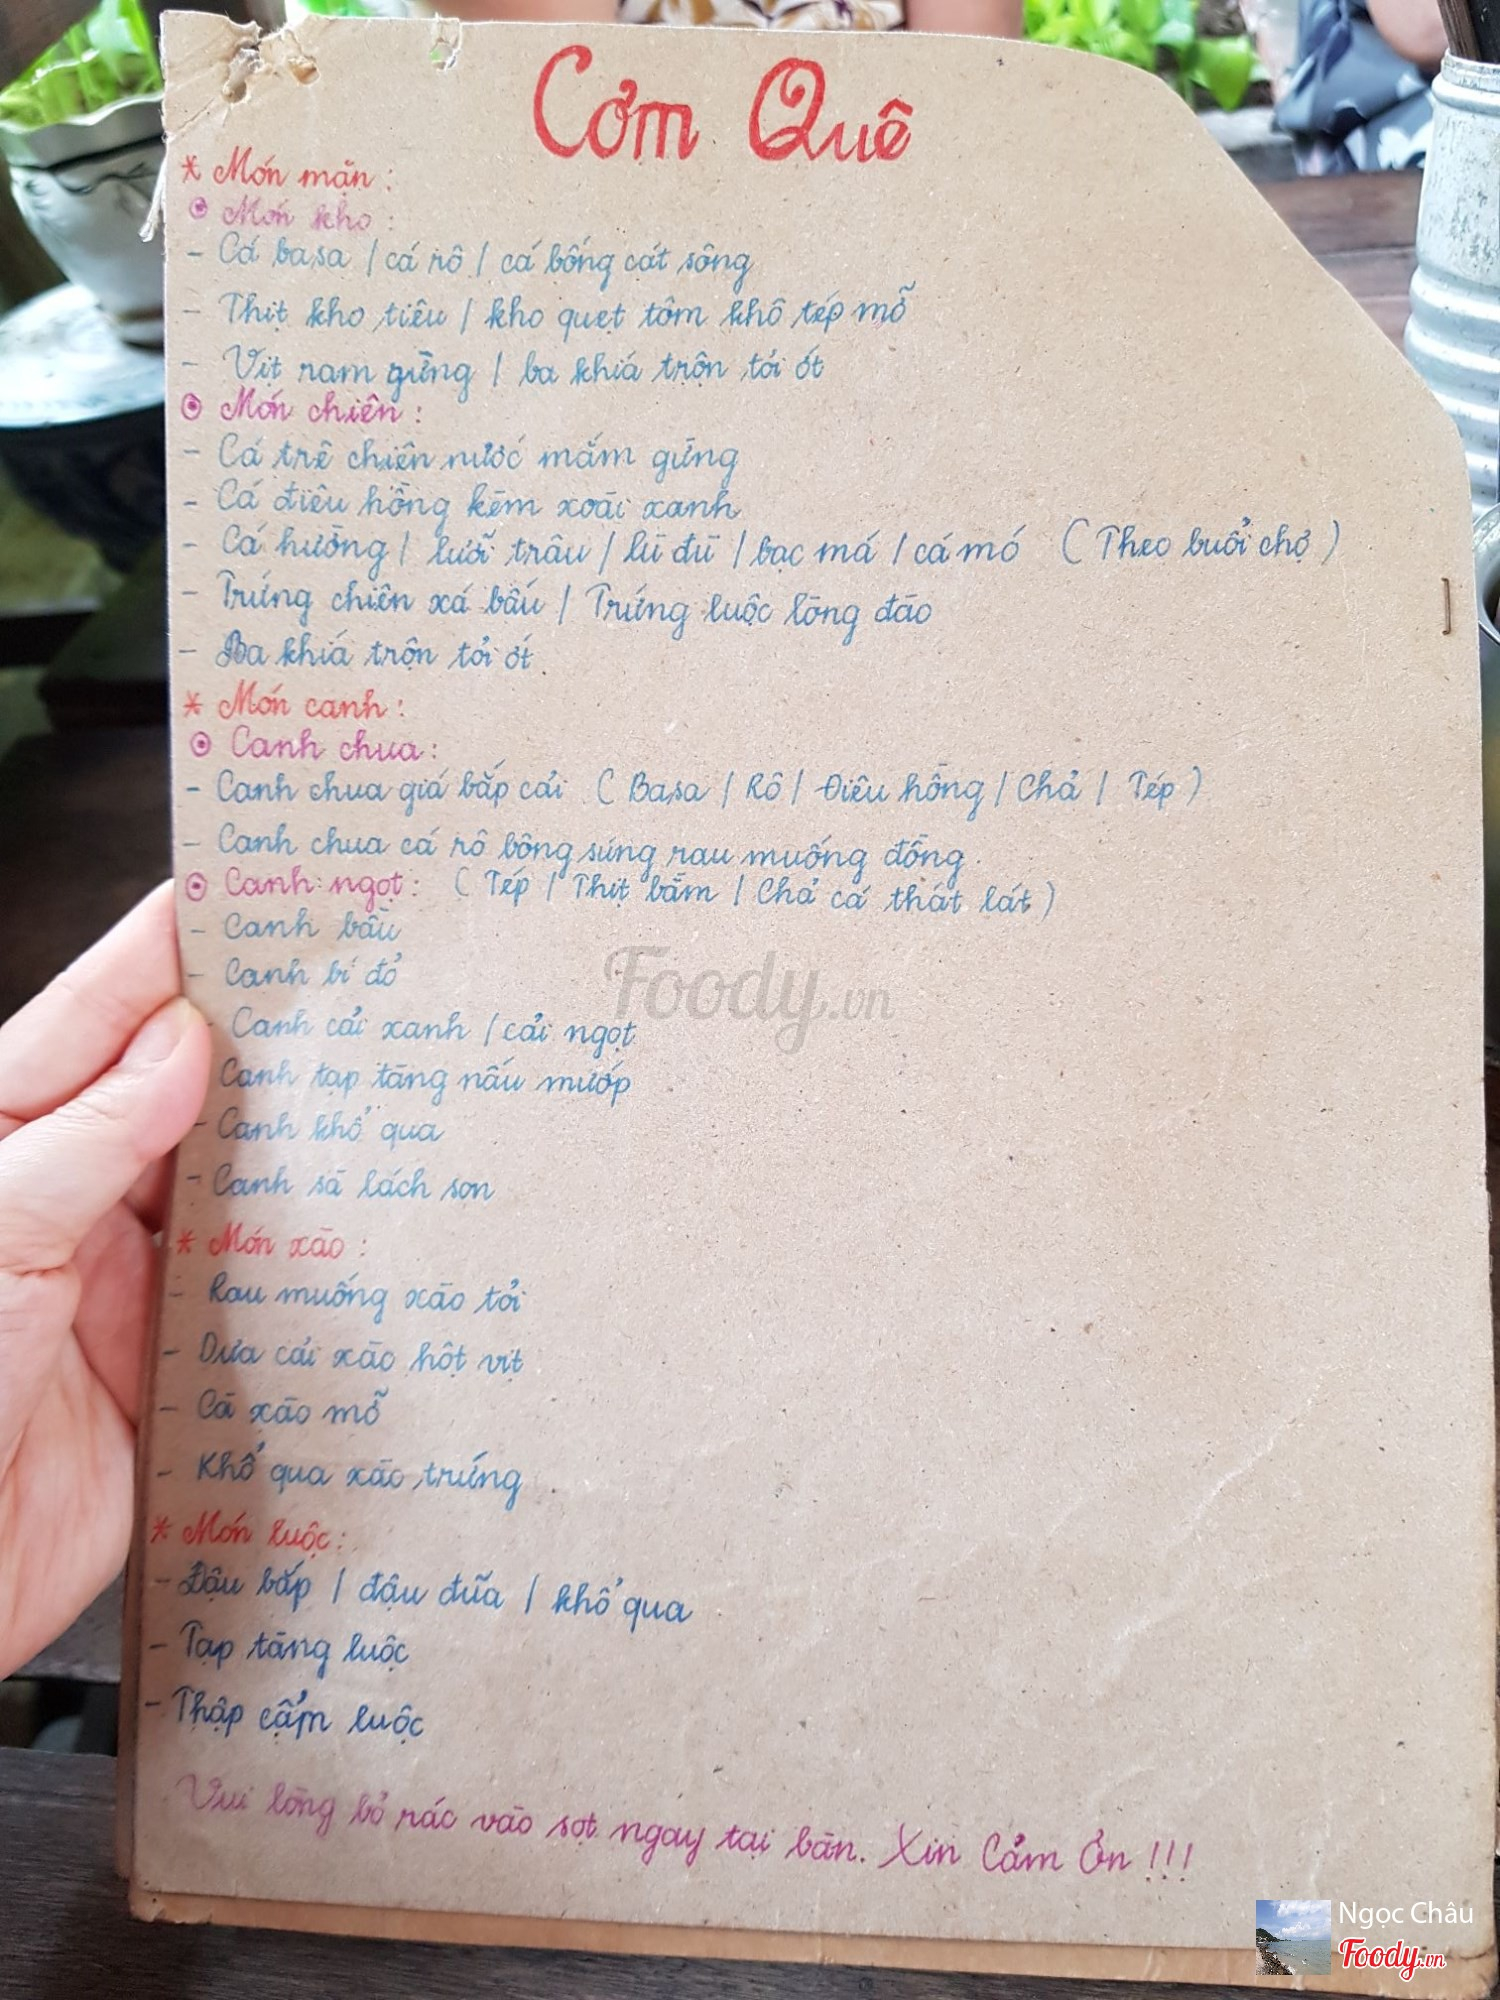 Cơm Quê
* Món mặn:
⊙ Món kho:
- Cá basa / cá rô / cá bống cát sông
- Thịt kho tiêu / kho quẹt tôm khô tép mỡ
- Vịt ram gừng / ba khía trộn tỏi ớt
⊙ Món chiên:
- Cá trê chiên nước mắm gừng
- Cá điêu hồng kèm xoài xanh
- Cá hường / lưỡi trâu / lù đù / bạc má / cá mó ( Theo buổi chợ )
- Trứng chiên xá bấu / Trứng luộc lòng đào
- Ba khía trộn tỏi ớt
* Món canh:
⊙ Canh chua:
- Canh chua giá bắp cải ( Basa / Rô / Điêu hồng / Chả / Tép )
- Canh chua cá rô bông súng rau muống đồng.
⊙ Canh ngọt: ( Tép / Thịt bằm / Chả cá thát lát )
- Canh bầu
- Canh bí đỏ
Canh cải xanh / cải ngọt
Canh tạp tàng nấu mướp
- Canh khổ qua
- Canh sà lách son
* Món xào:
- Rau muống xào tỏi
- Dưa cải xào hột vịt
- Cà xào mỡ
- Khổ qua xào trứng
* Món luộc:
- Đậu bắp / đậu đũa / khổ qua
- Tạp tàng luộc
- Thập cẩm luộc
Vui lòng bỏ rác vào sọt ngay tại bàn. Xin Cảm Ơn !!!
Foody.vn
Ngọc Châu
Foody.vn